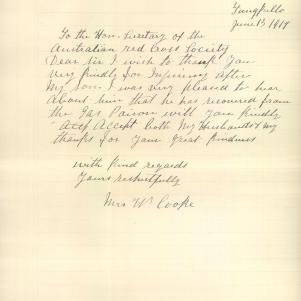 Tungkillo
June 13 1918
To the Hon. Secretary of the
Australian red Cross Society
Dear Sir I wish to thank you
very kindly for Inquiring After
My son. I was very pleased to hear
About him that he has recovered from
the Gas Poison will you kindly
Accept both My Husbands & my
thanks for your great kindness
with kind regards
Yours respectfully
Mrs W Cooke